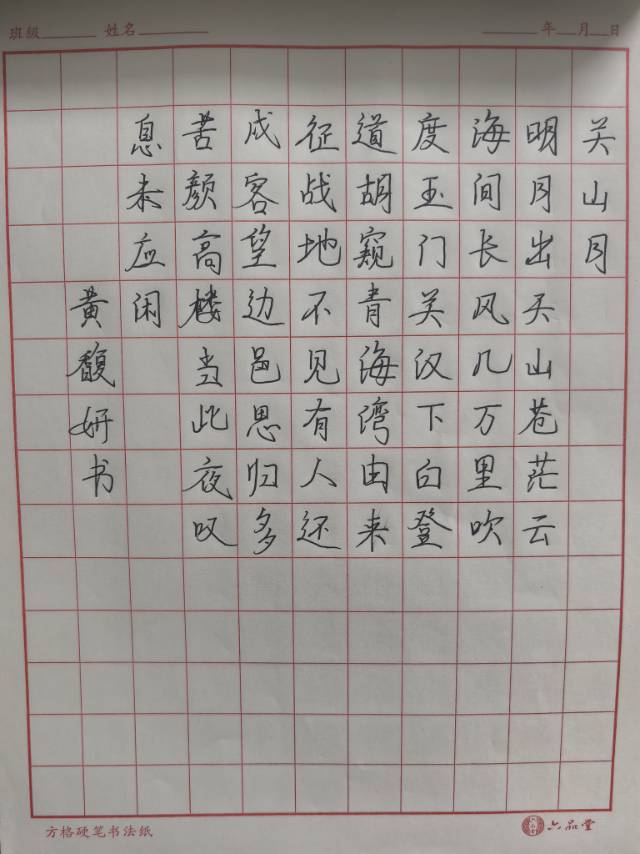 班级______ 姓名________ ______年__月__日
关山月
明月出天山苍茫云
海间长风几万里吹
度玉门关汉下白登
道胡窥青海湾由来
征战地不见有人还
戍客望边邑思归多
苦颜高楼当此夜叹
息未应闲
黄馥妍书
方格硬笔书法纸
六品堂